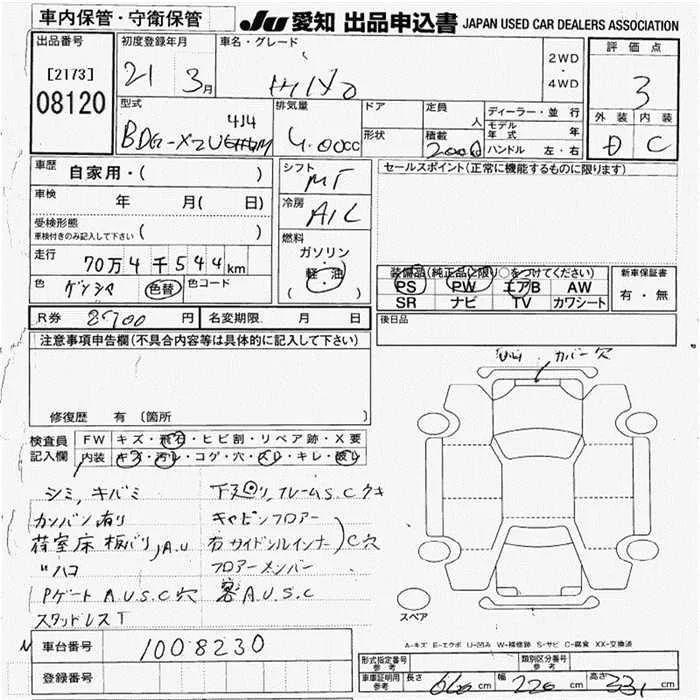 車内保管・守衛保管
JU 愛知 出品申込書 JAPAN USED CAR DEALERS ASSOCIATION
出品番号
[2173]
08120
初度登録年月
21 3月
車名・グレード
2WD
・
4WD
評価点
3
外装 内装
D C
型式
BDG-XZU
414
排気量
4.00cc
ドア
形状
定員
人
積載
2000
ディーラー・並行
モデル年式 年
ハンドル 左・右
車歴 自家用・( )
車検 年 月( 日)
受検形態
車検付きのみ記入して下さい ( )
走行 70万4千544km
色 ゲンショク 色替 色コード
シフト
MT
冷房
A/C
燃料
ガソリン
・
軽・油
( )
セールスポイント(正常に機能するものに限ります)
装備品(純正品に限り○をつけてください)
PS PW エアB AW
SR ナビ TV カワシート
新車保証書
有・無
後日品
R券 8700円 名変期限. 月 日
注意事項申告欄(不具合内容等は具体的に記入して下さい)
修復歴 有 〔箇所
検査員記入欄
FW キズ・飛石・ヒビ割・リペア跡・X要
内装 キズ・汚レ・コゲ・穴・スレ・キレ・破レ
カバー穴
シミ,キバミ
カンバン有り
荷室床 板バリ,A.U
〃ハコ
Pゲート A.U.S.C穴
スタッドレスT
下廻り,フレームS.Cウキ
キャビンフロアー
右サイドシルインナー
フロアーメンバー
C穴
A.U.S.C
スペア
A-キズ E-エクボ U-凹み W-補修跡 S-サビ C-腐食 XX-交換済
車台番号 1008230
登録番号
形式指定番号 参考
類別区分番号 参考
車庫証明用 参考 長さ 666cm 幅 220cm 高さ 331cm